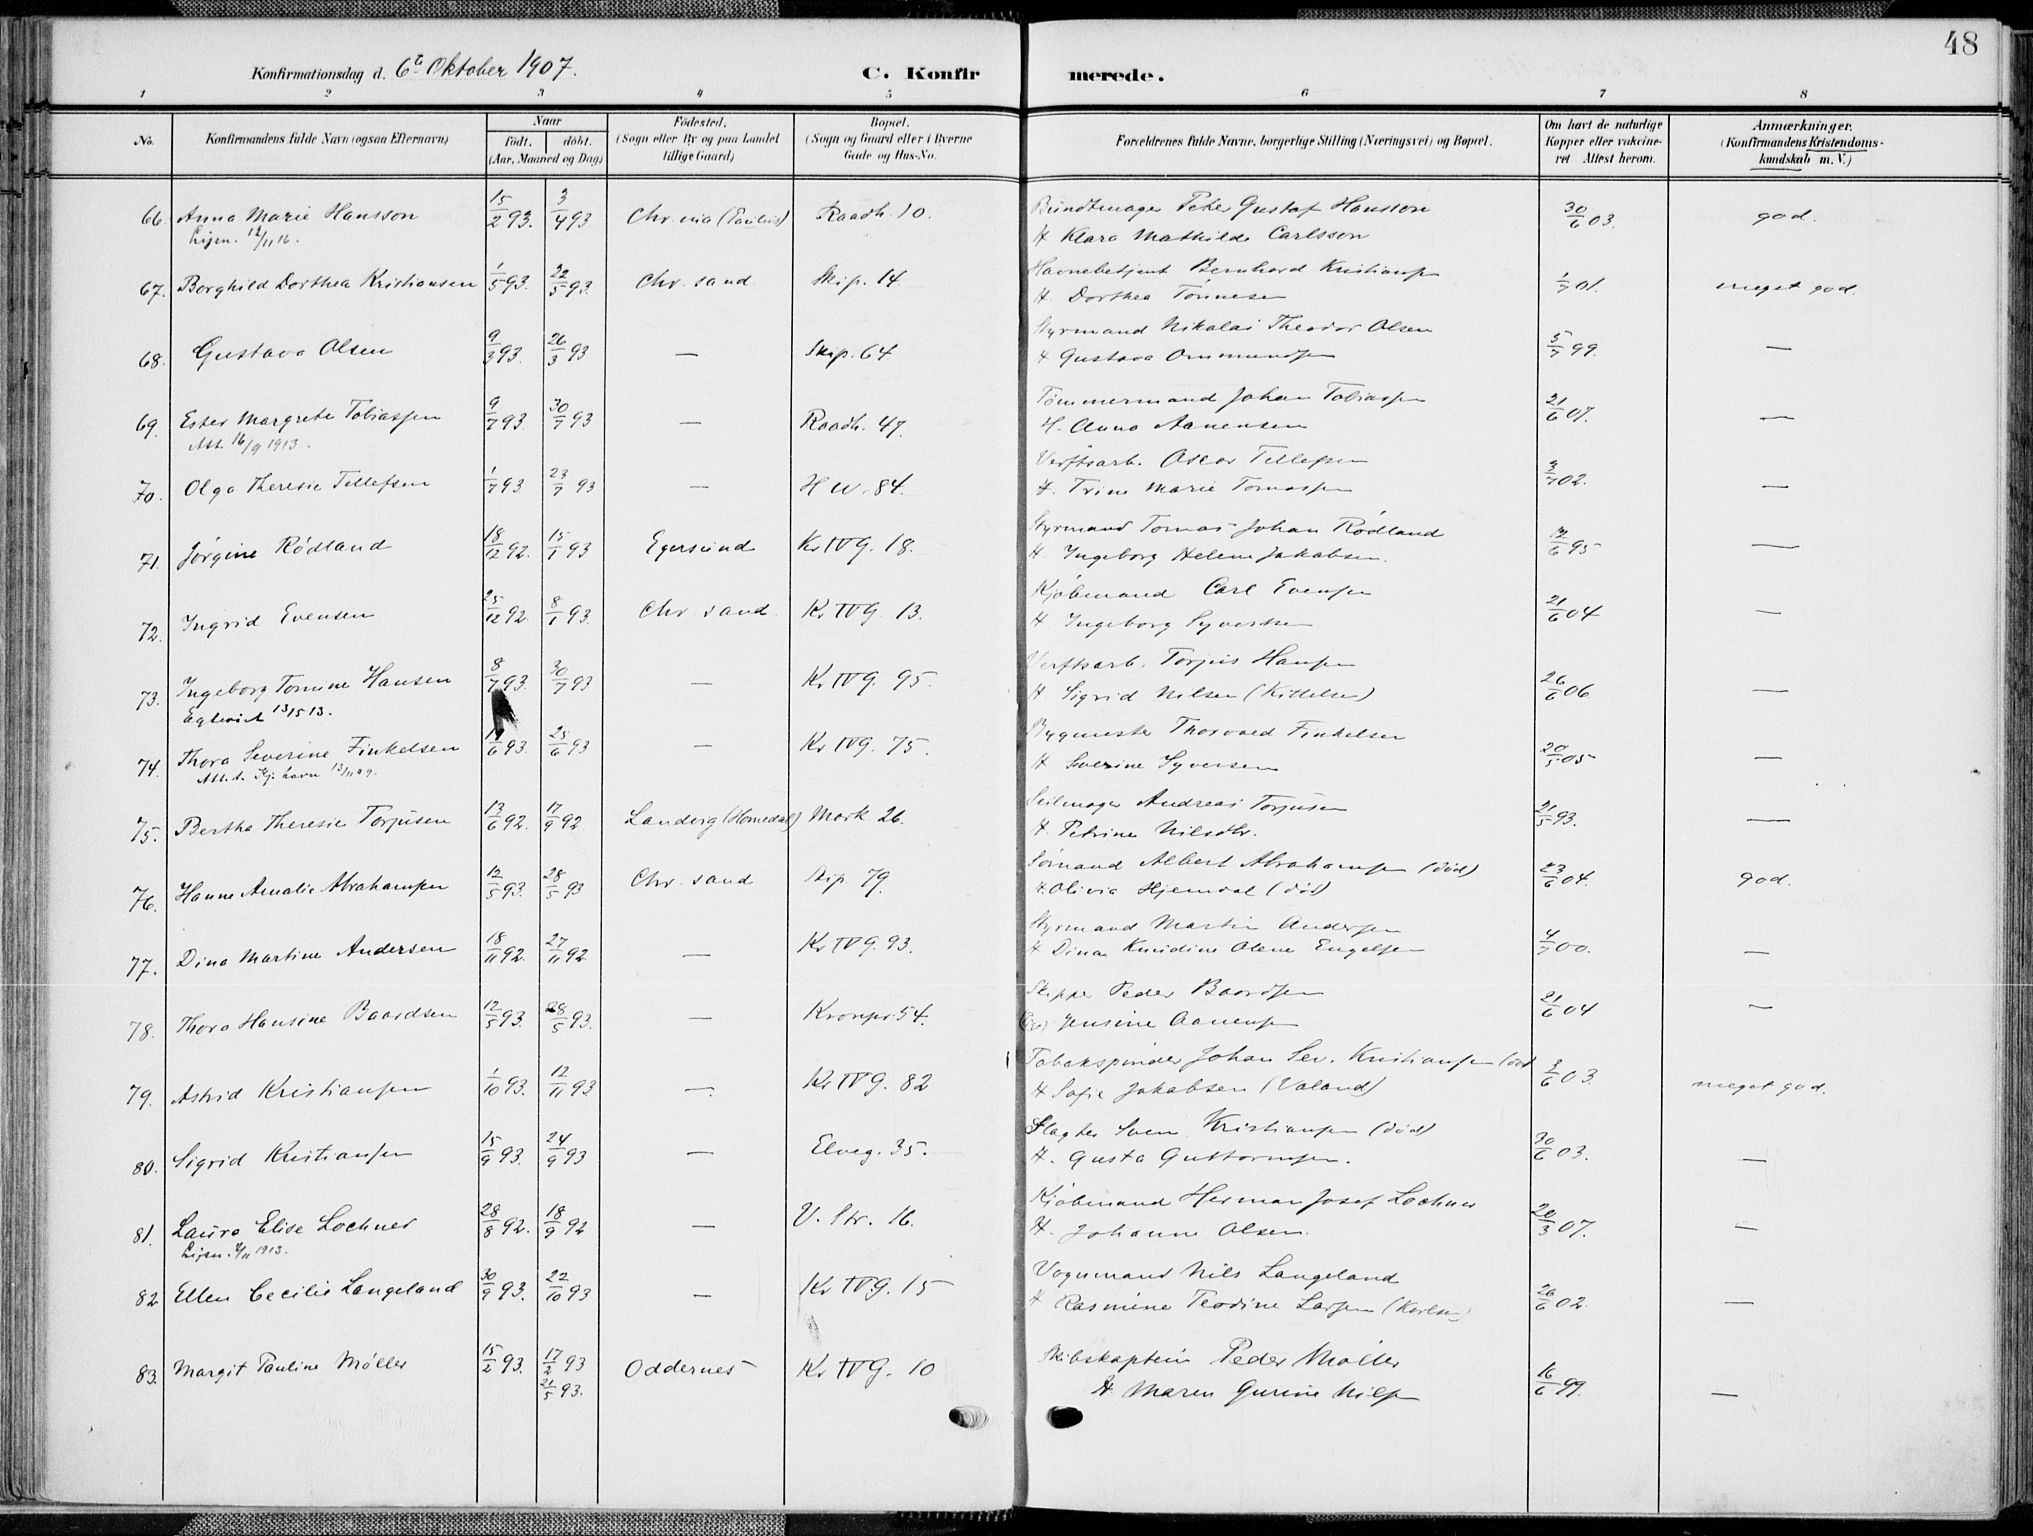 48
Konfirmationsdag d. 6te Oktober 1907. C. Konfirmerede.
1 2 3 4 5 6 7 8
No. Konfirmandens fulde Navn (ogsaa Efternavn) Naar født. døbt. (Aar, Maaned og Dag) Fødested. (Sogn eller By og paa Landet tillige Gaard) Bopæl. (Sogn og Gaard eller i Byerne Gade og Hus-No. Forældrenes fulde Navne, borgerlige Stilling (Næringsvei) og Bopæl. Om havt de naturlige Kopper eller vakcineret Attest herom. Anmærkninger. (Konfirmandens Kristendomskundskab m. V.)
66. Anna Marie Hansson 15/2 93. 3/4 93 Chr.nia (Paulus) Raadh. 10. Bundtmager Peter Gustaf Hansson 30/6 03. god.
Lijsn. 12/11 16. H Klara Mathilde Carlsson
67. Borghild Dorthea Kristiansen 1/5 93. 22/5 93. Chr. sand Skip. 14. Havnebetjent Bernhard Kristiansen 1/7 01. meget god.
H. Dorthea Tønnesen
68. Gustava Olsen 9/3 93. 26/3 93 — Skip. 64 Styrmand Nikolai Theodor Olsen 5/7 99. —
H Gustava Ommundsen
69. Ester Margrete Tobiassen 9/7 93. 30/7 93 — Raadh. 47. Tømmermand Johan Tobiassen 21/6 07. —
Att. 16/9 1913. H. Anna Aanensen
70. Olga Theresie Tellefsen 1/7 93 23/7 93 — H W. 84. Verftsarb. Oscar Tellefsen 3/7 02. —
H. Trine Marie Tomassen
71. Jørgine Rødland 18/12 92. 15/1 93 Egersund Kr IV G. 18. Styrmand Tomas Johan Rødland 12/6 95 —
H. Ingeborg Helene Jakobsen.
72. Ingrid Evensen 25/12 92. 8/1 93. Chr. sand Kr IV G. 13. Kjøbmand Carl Evensen 21/6 04 —
H Ingeborg Syvertsen
73. Ingeborg Tomine Hansen 8/7 93. 30/7 93 — Kr IV G. 95. Verftsarb. Torjus Hansen 26/6 06 —
Egtevict 13/5 13. H Sigrid Nilsen (Kittelsen)
74. Thora Severine Finkelsen /6 93. 25/6 93 — Kr IV G. 75. Bygmester Thorvald Finkelsen 20/5 05 —
Att. t. Kj.havn 13/11 09. H Severine Syversen
75. Bertha Theresie Torjusen 13/6 92. 17/9 92 Landvig (Homedal) Mark 26. Seilmager Andreas Torjusen 21/5 93. —
H. Petrine Nilsdtr.
76. Hanne Amalie Abrahamsen 12/5 93. 28/5 93 Chr. sand Skip. 79. Sømand Albert Abrahamsen (død) 23/6 04. god.
H Olivia Hjemdal (død)
77. Dina Martine Andersen 18/11 92. 27/11 92. — Kr IV G. 93. Styrmand Martin Andersen 4/7 00. —
H Dina Knudine Olene Engelsen
78. Thora Hansine Baardsen 12/5 93. 28/5 93. — Kronpr. 54. Skipper Peder Baardsen 21/6 04 —
Jensine Aanensen
79. Astrid Kristiansen 1/10 93. 12/11 93 — Kr IV G. 82 Tobakspinder Johan Sev. Kristiansen (død 3/6 03. meget god.
H Sofie Jakobsen (Valand)
80. Sigrid Kristiansen 15/9 93. 24/9 93 — Elveg. 35. Slagter Sven Kristiansen (død) 30/6 03. —
H. Gusta Guttormsen.
81. Laura Elise Lochner 28/8 92. 18/9 92 — V. Str. 16. Kjøbmand Herman Josef Lochner 20/3 07. —
Lijsn. 1913. H. Johanne Olsen.
82 Ellen Cecilie Langeland 30/9 93. 22/10 93 — Kr IV G. 15 Vognmand Nils Langeland 26/6 02. —
H Rasmine Teodine Larsen (Karlsen)
83. Margit Pauline Møller 15/2 93. 17/2 93 Oddernes Kr IV G. 10 Skibskaptein Peder Møller 16/6 99. —
21/5 93. H Maren Gurine Nilsen